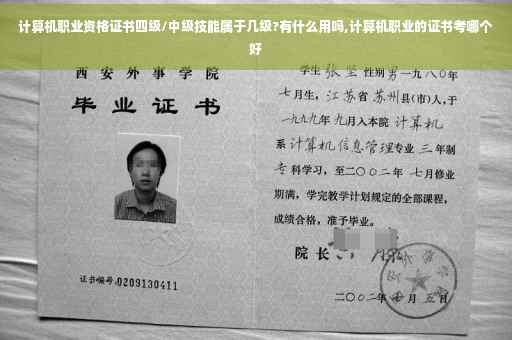 计算机职业资格证书四级/中级技能属于几级?有什么用吗,计算机职业的证书考哪个
好
西安外事学院
毕业证书
证书编号:0209130411
学生 张坚 性别 男 一九八〇年
七月生, 江苏省 苏州县(市)人,于
一九九九年 九月入本院 计算机
系 计算机信息管理专业 三年制
专科学习,至二〇〇二年 七月修业
期满,学完教学计划规定的全部课程,
成绩合格,准予毕业。
院长
二〇〇二年 月 五日